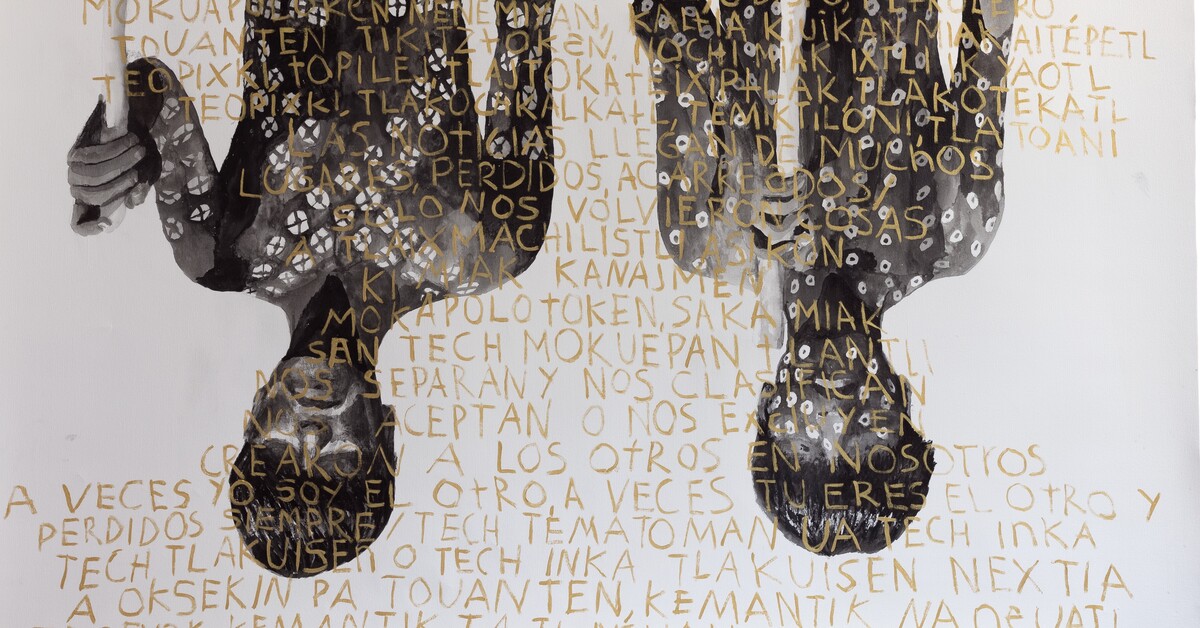 MOKUAPOLOKEN NENEMIYAN, KAHIA KIUIKAN MIAK AITÉPETL
TOUANTEN TIKITZTOKEN, NOCHI MIAK IXTLOK YAOTL
TEOPIXKI, TOPILEJ, TLAJTOKATEIXPITLAK, TLAKOTEKATL
TEOPIXKI, TLAKOCALKALKATL, TEMIKTILONI TLATOANI
LAS NOTICIAS LLEGAN DE MUCHOS
LUGARES, PERDIDOS, ACARREODOS,
SOLO NOS VOLVIERON COSAS
A TLAIXMACHILISTLI ASIKON
KI MIAK KANAJMEN
MOKAPOLOTOKEN, SAKA MIAK
SAN TECH MOKUEPAN TLANTLI
NOS SEPARAN Y NOS CLASIFICAN
NOS ACEPTAN O NOS EXCLUYEN
CREAKON A LOS OTROS EN NOSOTROS
A VECES YO SOY EL OTRO, A VECES TU ERES EL OTRO Y
PERDIDOS SIEMPRE/TECH TEMATOMAN UA TECH INKA
TECH TLAKUISEN O TECH INKA TLAKUISEN NEXTIA
A OKSEKIN PA TOUANTEN, KEMANTIK NA
KEMANTIK